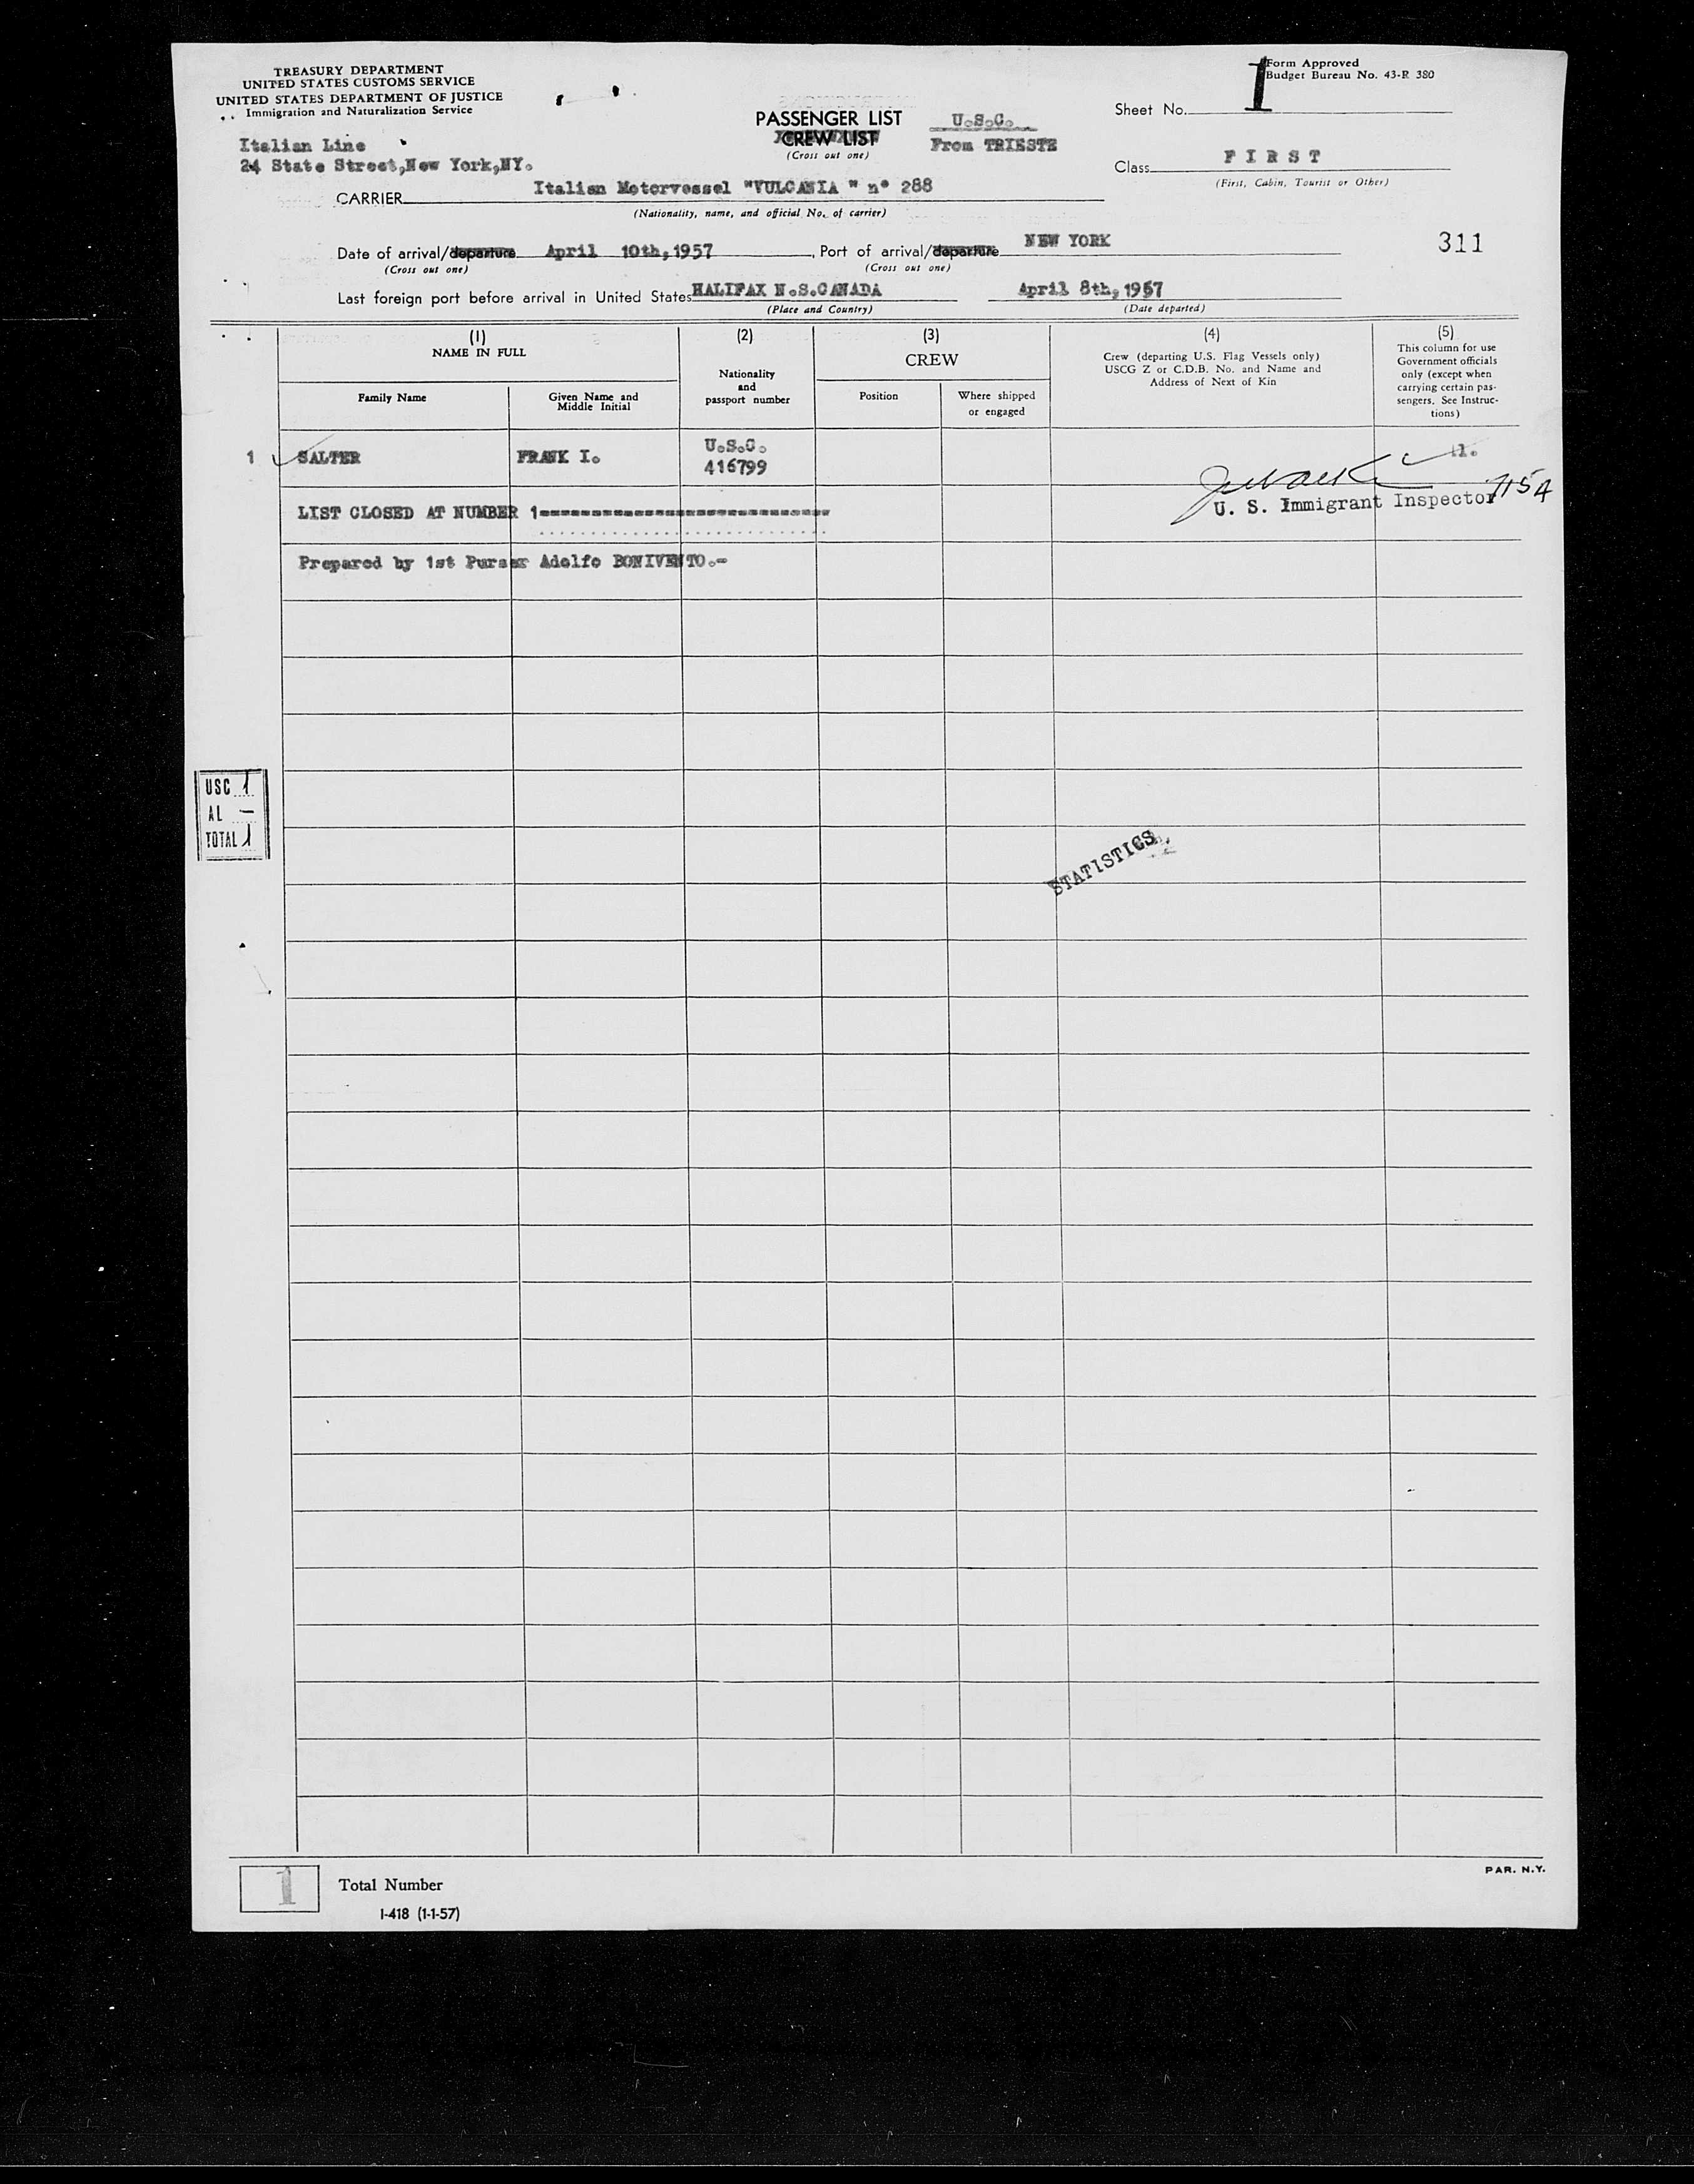 TREASURY DEPARTMENT
UNITED STATES CUSTOMS SERVICE
UNITED STATES DEPARTMENT OF JUSTICE
Immigration and Naturalization Service
Form Approved
Budget Bureau No. 43-R 380
Sheet No. 1
PASSENGER LIST
CREW LIST
(Cross out one)
U.S.C.
From TRIESTE
Italian Line
24 State Street,New York,NY.
Class F I R S T
(First, Cabin, Tourist or Other)
CARRIER Italian Motorvessel "VULCANIA " n° 288
(Nationality, name, and official No. of carrier)
Date of arrival/departure April 10th,1957, Port of arrival/departure NEW YORK
(Cross out one) (Cross out one)
311
Last foreign port before arrival in United States HALIFAX N.S.CANADA April 8th,1957
(Place and Country) (Date departed)
(1) (2) (3) (4) (5)
NAME IN FULL
Family Name
Given Name and
Middle Initial
Nationality
and
passport number
CREW
Position
Where shipped
or engaged
Crew (departing U.S. Flag Vessels only)
USCG Z or C.D.B. No. and Name and
Address of Next of Kin
This column for use
Government officials
only (except when
carrying certain pas-
sengers. See Instruc-
tions)
1 SALTER FRANK I. U.S.C.
416799
U. S. Immigrant Inspector
LIST CLOSED AT NUMBER 1
Prepared by 1st Purser Adolfo BONIVENTO.-
USC 1
AL —
TOTAL 1
STATISTICS
1 Total Number
I-418 (1-1-57)
PAR. N.Y.